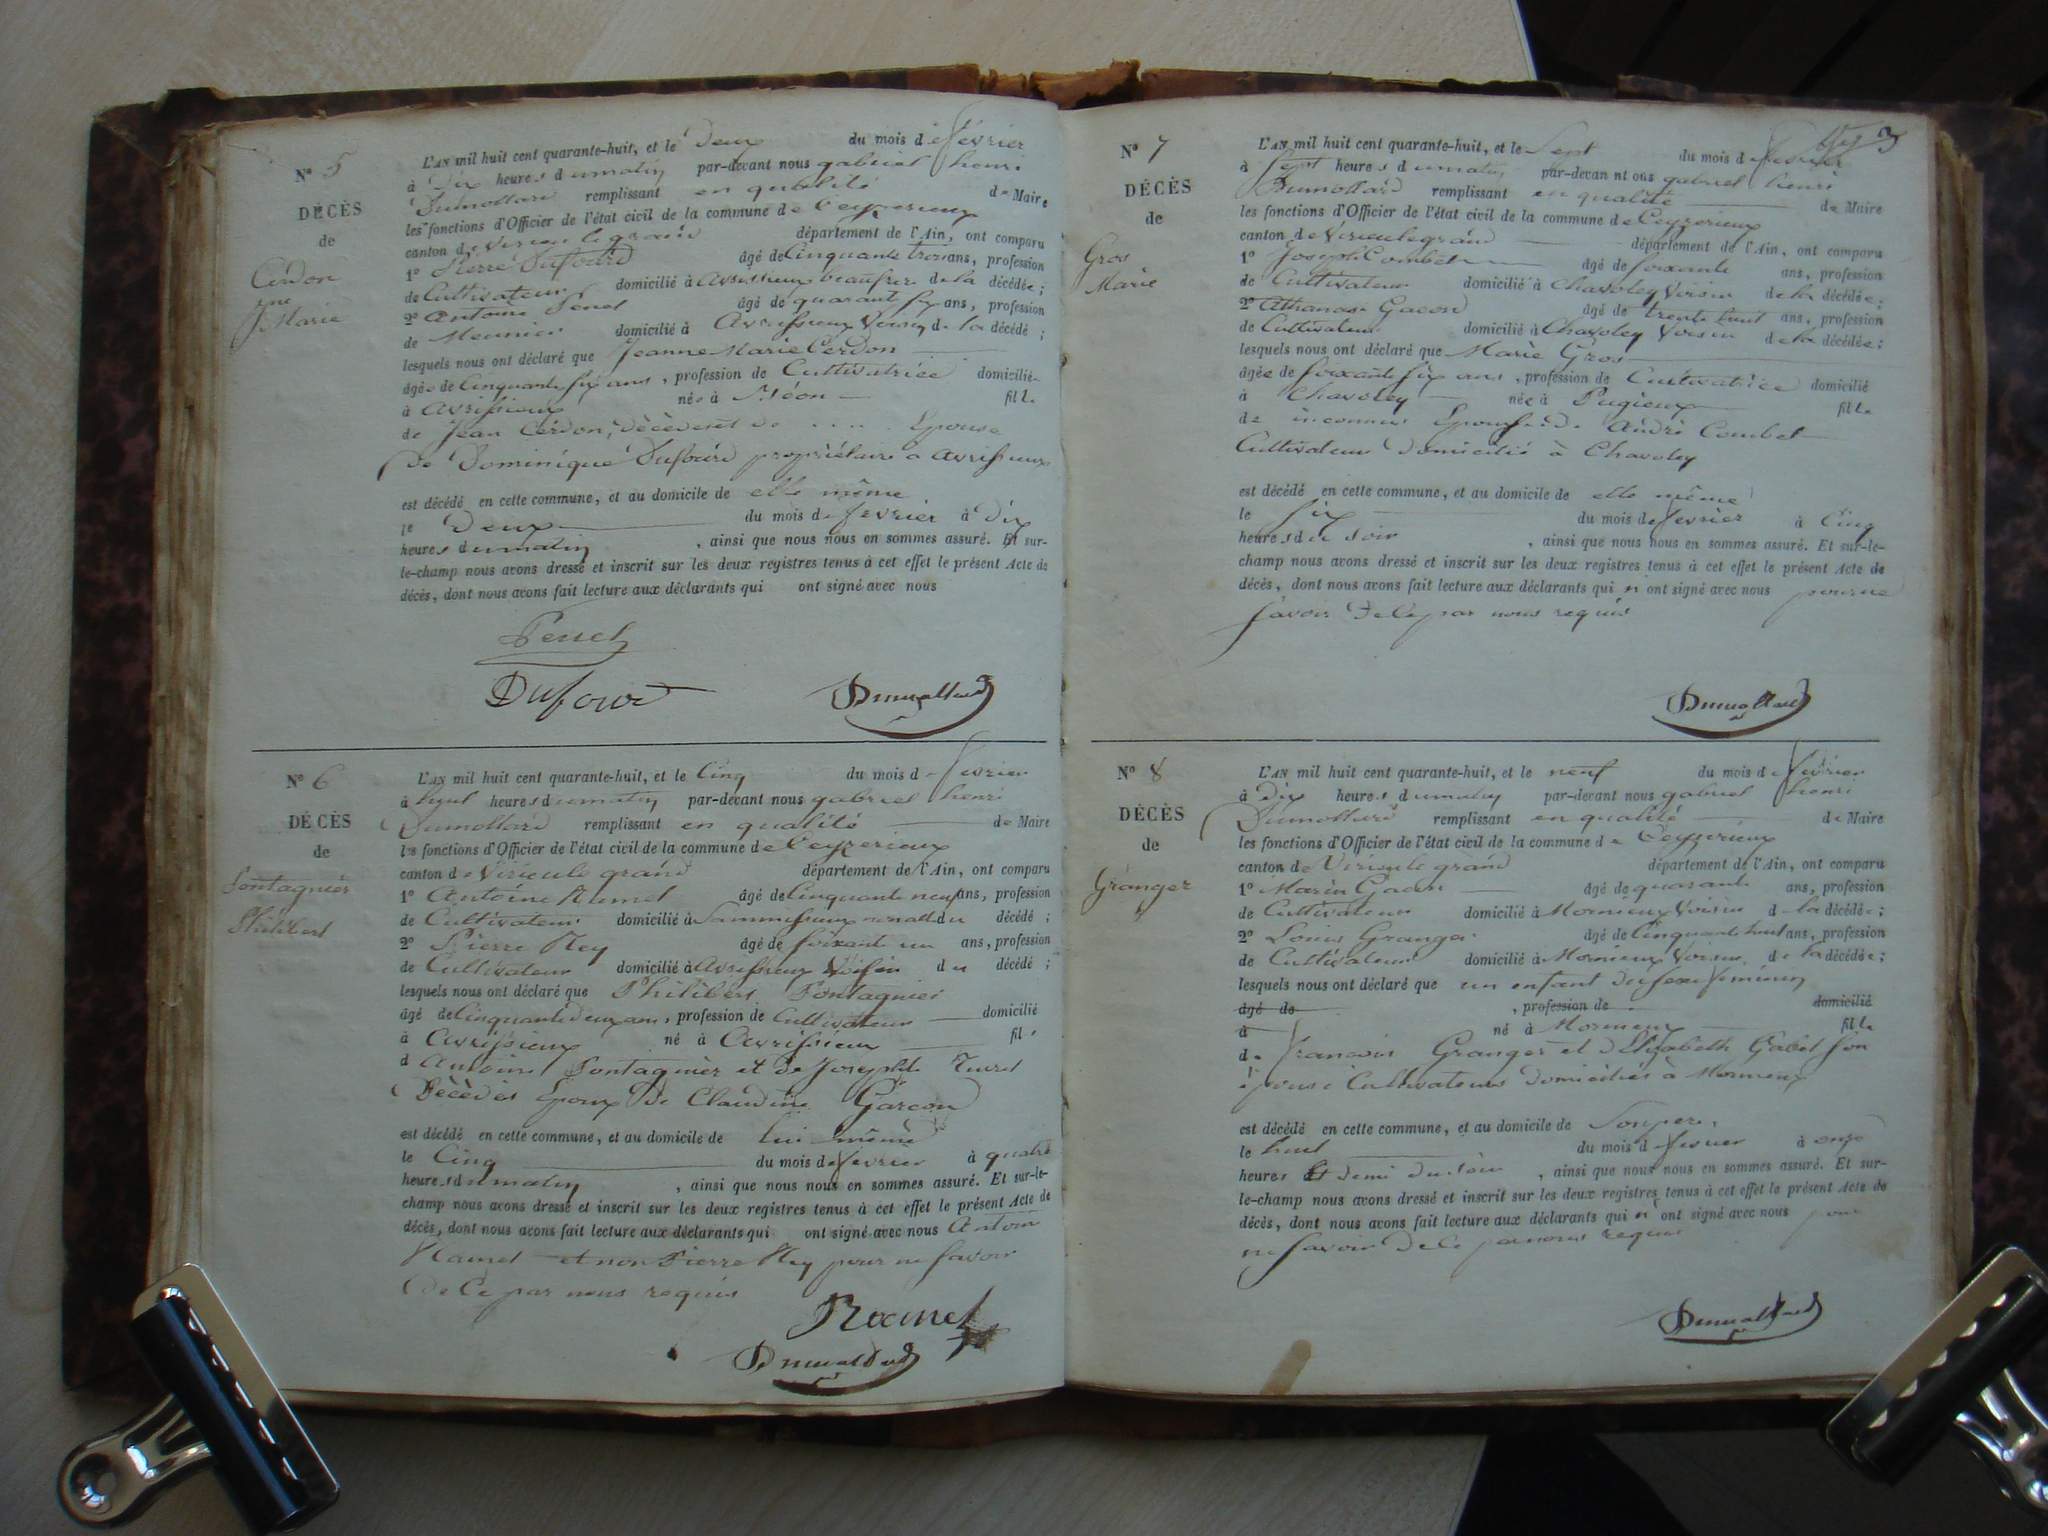 N° 5
DÉCÈS
de
Cerdon
jne
Marie
L'AN mil huit cent quarante-huit, et le Deux du mois de fevrier
à Dix heures du matin par-devant nous gabriel henri
Dumollard remplissant en qualité de Maire
les fonctions d'Officier de l'état civil de la commune de Ceyzerieux
canton de Virieu le grand département de l'Ain, ont comparu
1° Pierre Dufour âgé de Cinquante trois ans, profession
de Cultivateur domicilié à Avrissieux beaufrere de la décédée;
2° Antoine Penel âgé de quarante six ans, profession
de Meunier domicilié à Avrissieux Voisin de la décédé;
lesquels nous ont déclaré que Jeanne Marie Cerdon
âgée de Cinquante six ans, profession de Cultivatrice domiciliée
à Avrissieux née à fille
de Jean Cerdon, décédé et de .... Epouse
De Dominique Dufour propriétaire a Avrissieux
est décédé en cette commune, et au domicile de elle même
le Deux du mois de fevrier à Dix
heures du matin, ainsi que nous nous en sommes assuré. Et sur-
le-champ nous avons dressé et inscrit sur les deux registres tenus à cet effet le présent Acte de
décès, dont nous avons fait lecture aux déclarants qui ont signé avec nous
Penel
Dufour Dumollard
N° 6
DÉCÈS
de
Fontagnier
Philibert
L'AN mil huit cent quarante-huit, et le Cinq du mois de fevrier
à huit heures du matin par-devant nous gabriel henri
Dumollard remplissant en qualité de Maire
les fonctions d'Officier de l'état civil de la commune de Ceyzerieux
canton de Virieu le grand département de l'Ain, ont comparu
1° Antoine Ramel âgé de Cinquante neuf ans, profession
de Cultivateur domicilié à du décédé;
2° Pierre Rey âgé de soixante un ans, profession
de Cultivateur domicilié à Avrissieux Voisin du décédé;
lesquels nous ont déclaré que Philibert Fontagnier
âgé de Cinquante deux ans, profession de Cultivateur domicilié
à Avrissieux né à Avrissieux fils
d Antoine Fontagnier et de Josephte
Décédés Epoux De Claudine Garcon
est décédé en cette commune, et au domicile de lui même
le Cinq du mois de fevrier à quatre
heures du matin, ainsi que nous nous en sommes assuré. Et sur-le-
champ nous avons dressé et inscrit sur les deux registres tenus à cet effet le présent Acte de
décès, dont nous avons fait lecture aux déclarants qui ont signé avec nous Antoine
Ramel et non Pierre Rey pour ne savoir
De Ce par nous requis
Ramel
Dumollard
3
N° 7
DÉCÈS
de
Gros
Marie
L'AN mil huit cent quarante-huit, et le Sept du mois de fevrier
à Sept heures du matin par-devant nous gabriel henri
Dumollard remplissant en qualité de Maire
les fonctions d'Officier de l'état civil de la commune de Ceyzerieux
canton de Virieu le grand département de l'Ain, ont comparu
1° Joseph Combet âgé de soixante ans, profession
de Cultivateur domicilié à Chavoley Voisin de la décédée;
2° Athanase Gacon âgé de trente huit ans, profession
de Cultivateur domicilié à Chavoley Voisin de la décédée;
lesquels nous ont déclaré que Marie Gros
âgée de soixante six ans, profession de Cultivatrice domicilié
à Chavoley née à Pugieux fille
de inconnus Epouse de André Combet
Cultivateur Domicilié à Chavoley
est décédé en cette commune, et au domicile de elle même
le six du mois de fevrier à Cinq
heures du soir, ainsi que nous nous en sommes assuré. Et sur-le-
champ nous avons dressé et inscrit sur les deux registres tenus à cet effet le présent Acte de
décès, dont nous avons fait lecture aux déclarants qui n'ont signé avec nous pour ne
savoir De Ce par nous requis
Dumollard
N° 8
DÉCÈS
de
Granger
L'AN mil huit cent quarante-huit, et le neuf du mois de fevrier
à Dix heures du matin par-devant nous gabriel henri
Dumollard remplissant en qualité de Maire
les fonctions d'Officier de l'état civil de la commune de Ceyzerieux
canton de Virieu le grand département de l'Ain, ont comparu
1° Marin Gacon âgé de quarante ans, profession
de Cultivateur domicilié à Mornieux Voisin de la décédée;
2° Louis Granger âgé de Cinquante huit ans, profession
de Cultivateur domicilié à Mornieux Voisin de la décédée;
lesquels nous ont déclaré que un enfant du sexe feminin
âgé de , profession de domicilié
à né à Mornieux fille
de francois Granger et d'Elizabeth Gabet son
épouse Cultivateurs Domiciliés à Mornieux
est décédé en cette commune, et au domicile de Son pere
le huit du mois de fevrier à onze
heures et demi du soir, ainsi que nous nous en sommes assuré. Et sur-
le-champ nous avons dressé et inscrit sur les deux registres tenus à cet effet le présent Acte de
décès, dont nous avons fait lecture aux déclarants qui n'ont signé avec nous pour
ne savoir De Ce par nous requis
Dumollard